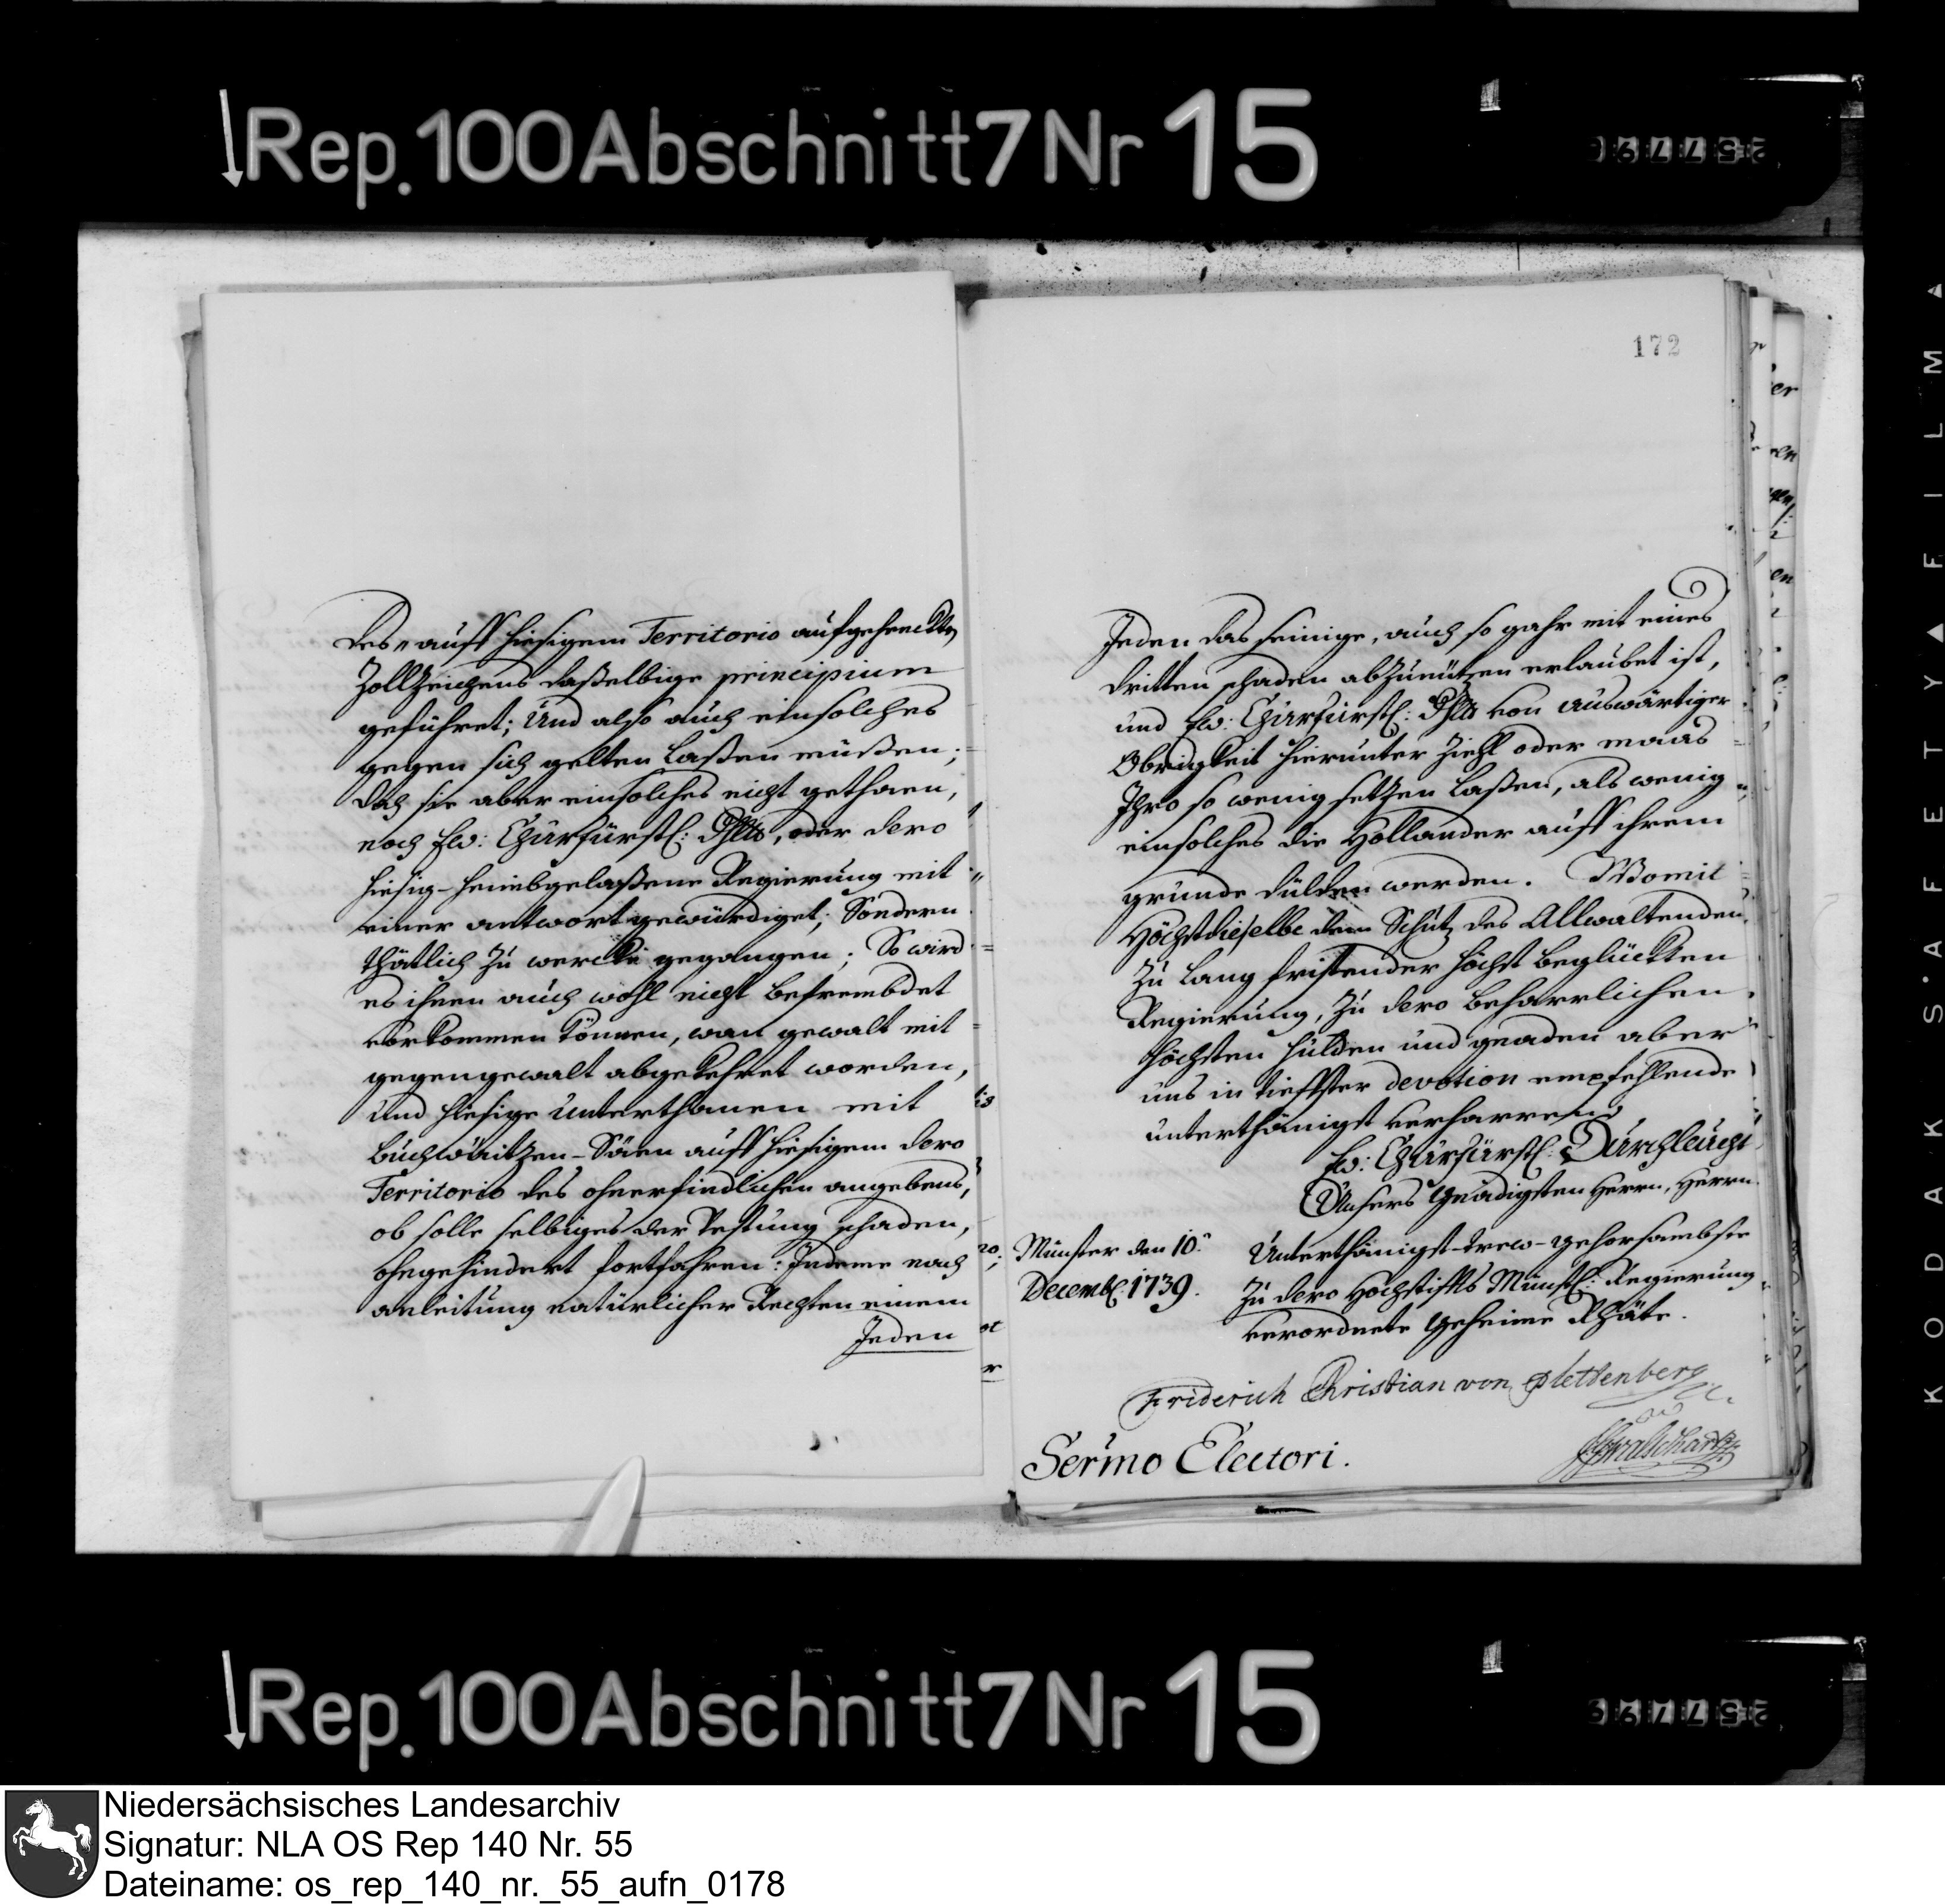 Rep. 100 Abschnitt 7 Nr 15
des auff hiesigem Territorio aufgehenckten
Zollzeichens daßelbige principium
geführet; Und also auch einsolches
gegen sich gelten laßen müßen;
Dah sie aber einsolches nicht gethaen,
noch Ew: Churfürstl: Dhltt, oder dero
hiesig-heimbgelaßene Regierung mit
einer antwort gewürdiget; Sondern
thätlich zu wercke gegangen; So wird
es ihnen auch wohl nicht befrembdet
vorkommen können, wan gewalt mit
gegengewalt abgekehret worden,
und hiesige Unterthanen mit
Buchwäitzen-Säen auff hiesigem dero
Territorio des ohnerfindlichen angebens,
ob solle selbiges der Vestung schaden,
ohngehindert fortfahren: Indeme nach
anleitung natürlicher Rechten einem
Jeden
172
Jeden das seinige, auch so gahr mit eines
dritten schaden abzunützen erlaubet ist,
und Ew: Churfürstl: Dhltt von auswärtiger
Obrigkeit hierunter Ziehl oder maas
Ihro so wenig setzen laßen, als wenig
einsolches die Hollander auff ihrem
grunde dülden werden. Womit
Höchstdieselbe dem Schutz des Allwaltenden
zu lang fristender höchst beglückten
Regierung, zu dero beharrlichen
höchsten hulden und gnaden aber
uns in tieffster devotion empfehlende
unterthänigst verharren
Ew: Churfürstl: Durchleucht
Unsers Gnädigsten Herrn, Herrn
Münster den 10.
Decembr: 1739.
Unterthänigst-trew-gehorsambste
Zu dero Hochstiffts Münstl: Regierung
verordnete Geheime Rhäte.
Friderich Christian von Plettenberg
Sermo Electori.
Rep. 100 Abschnitt 7 Nr 15
KODAK SAFETY FILM
Niedersächsisches Landesarchiv
Signatur: NLA OS Rep 140 Nr. 55
Dateiname: os_rep_140_nr._55_aufn_0178